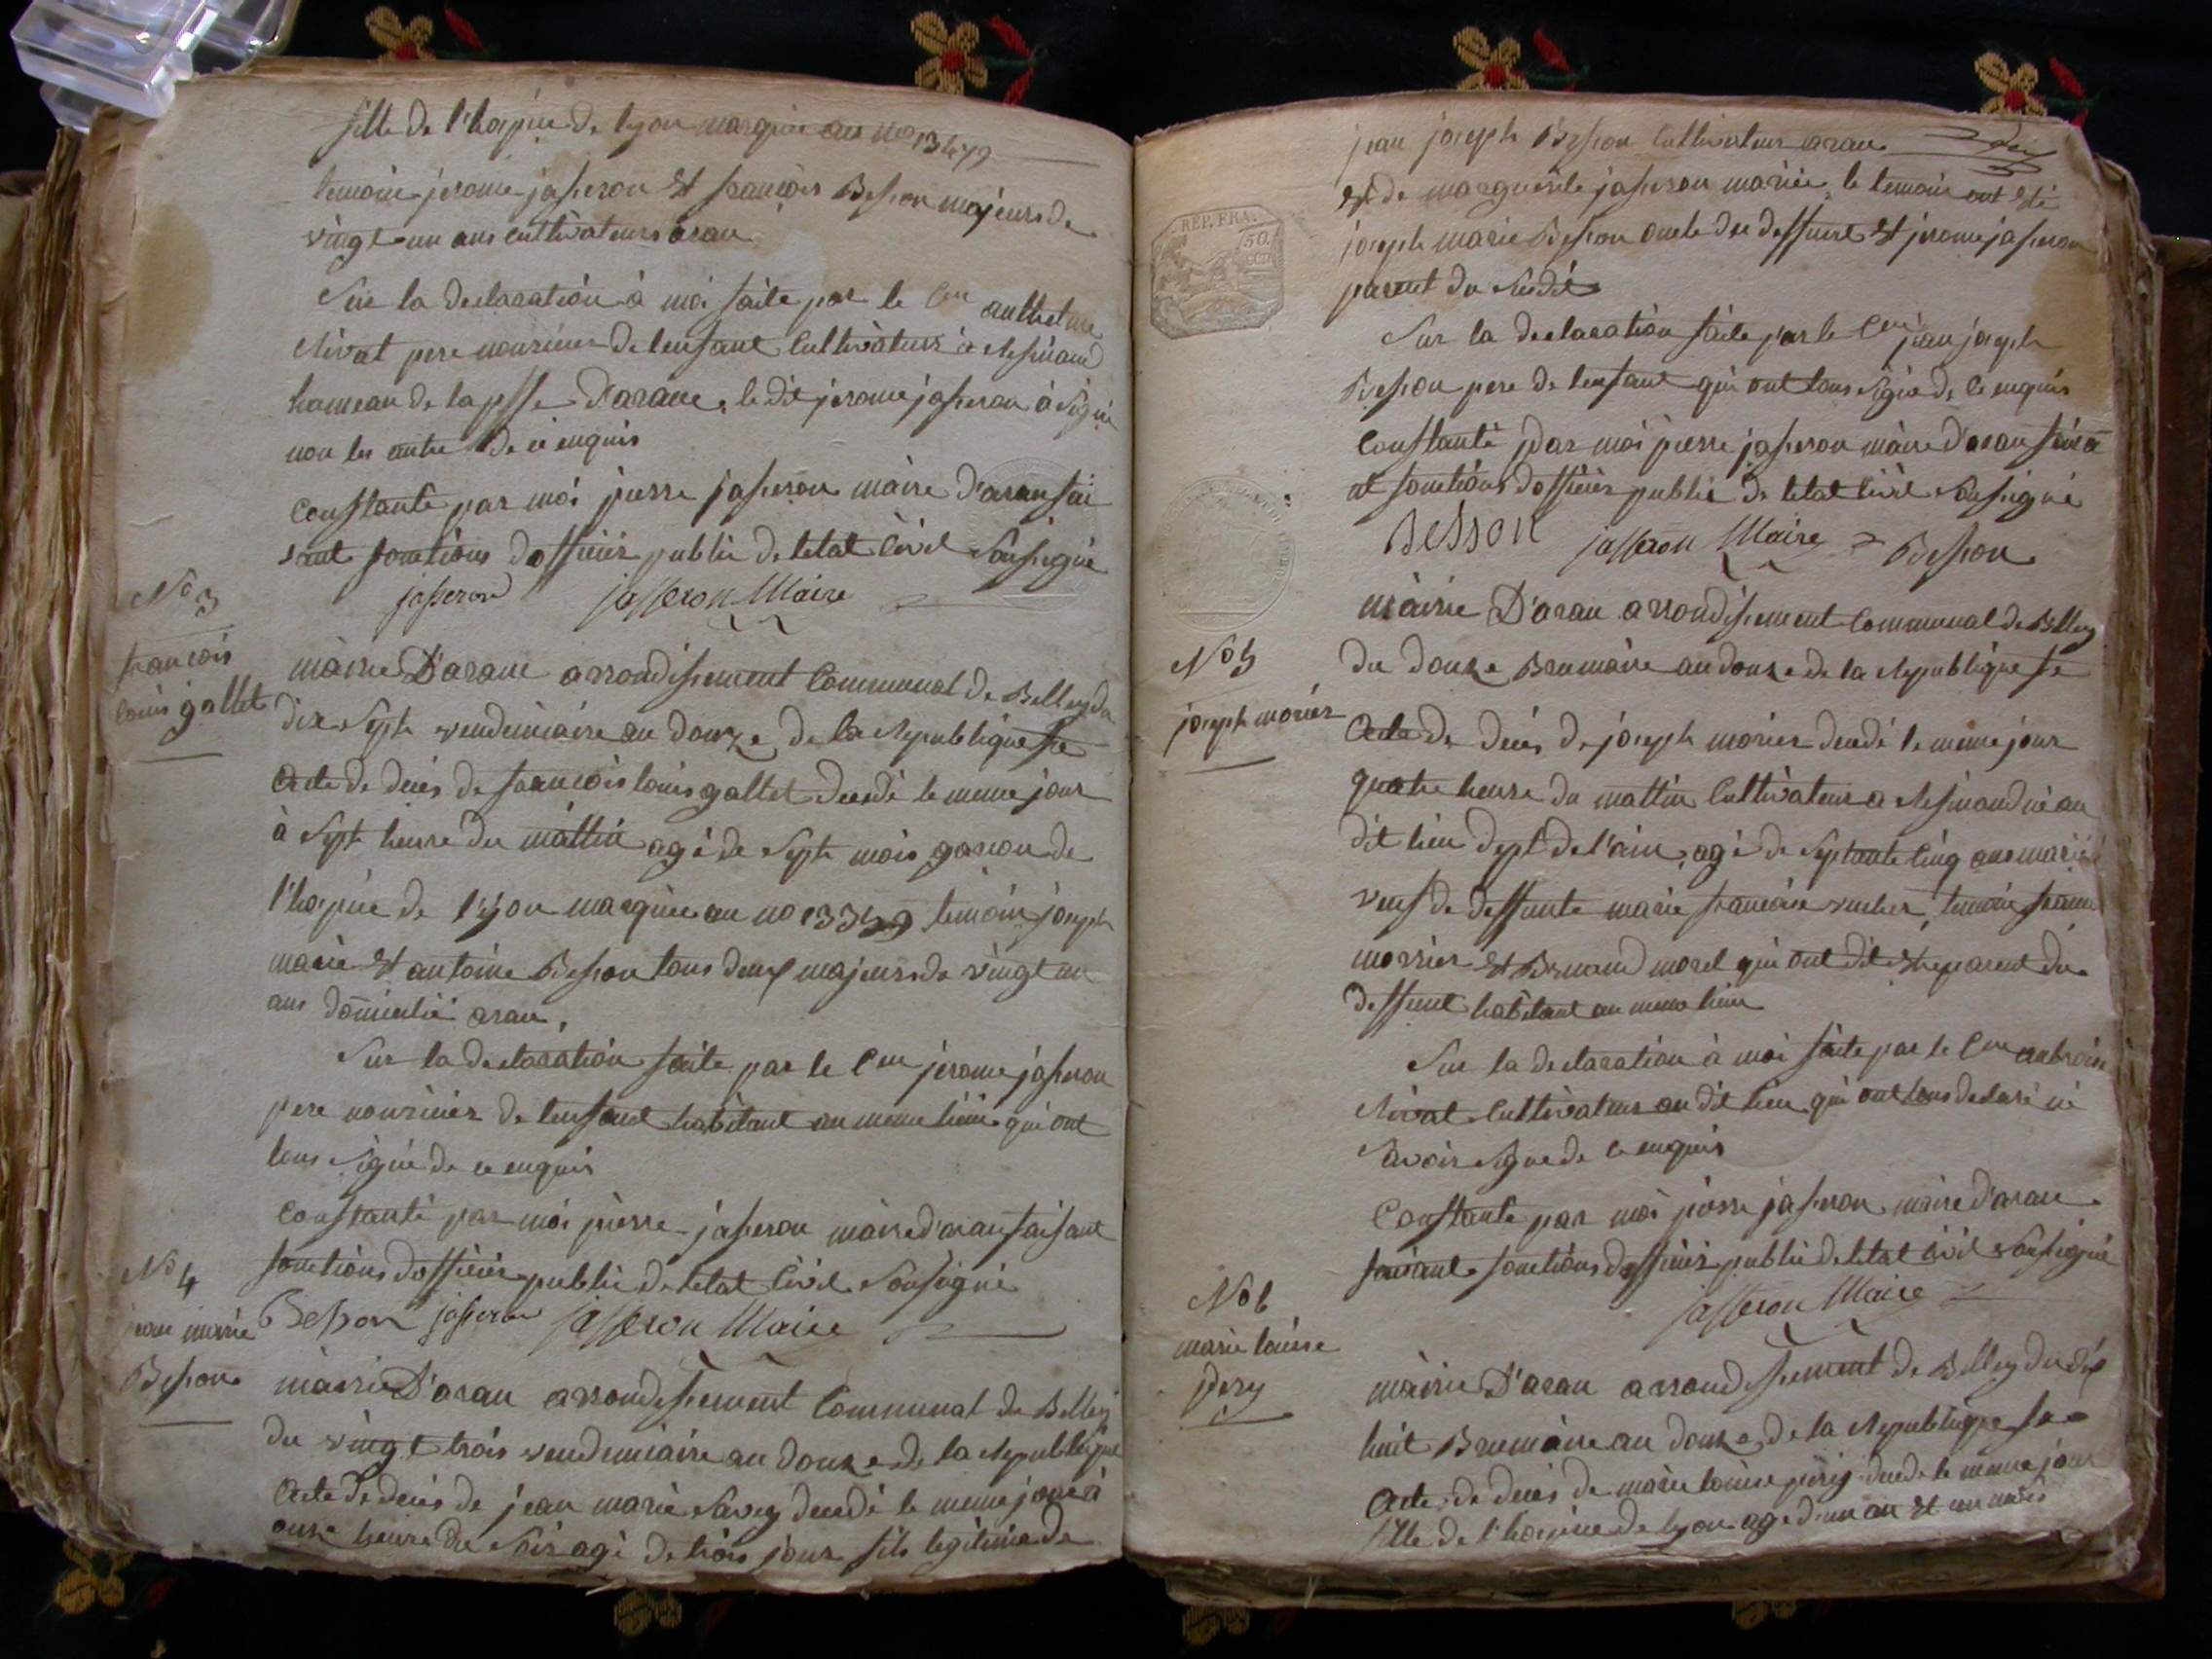 fille de l'hospice de lyon marquée au no 13479
temoin jerome jasseron et françois Besson majeurs de
vingt un ans cultivateurs aran
Sur la declaration à moi faite par le Cen anthelme
Nivat pere nouricier de lenfant Cultivateur à Resinand
hameau de la psse Daranc, le dit jerome jasseron à signé
non les autre de ce enquis
Constanté par moi pierre jasseron maire d'aran fai
sant fonctions dofficier public de letat Civil Sousigné
jasseron jasseron Maire
No 3
francois
louis gallet
mairie D'aranc arrondissement Communal de Belley du
dix Sept vendemiaire an douze de la Republique fse
Acte de decés de françois louis gallet decedé le meme jour
à Sept heure du mattin agé de Sept mois garçon de
l'hospice de lyon marquée au no 13359 temoin joseph
marie et antoine Besson tous deux majeurs de vingt un
ans domicilié aran,
Sur la declaration faite par le Cen jerome jasseron
pere nouricier de lenfant habitant au meme lieu qui ont
tous signé de ce enquis
Constanté par moi pierre jasseron maire d'aran faisant
fonctions dofficier public de letat Civil Sousigné
Besson jasseron jasseron Maire
No 4
jean marie
Besson
mairie D'aran arrondissement Communal de Belley
du vingt trois vendemiaire an douze de la Republique
Acte de decés de jean marie Savey decedé le meme jour à
onze heure du Soir agé de trois jour fils legitime de
jean joseph Besson Cultivateur aran
et de marguerite jasseron mariée, le temoin ont eté
joseph marie Besson oncle du deffunt et jerome jasseron
parent du Sudit
REP. FRA.
50
Sur la declaration faite par le Cen jean joseph
Besson pere de lenfant qui ont tous signé de ce enquis
Constanté par moi pierre jasseron maire d'aran
fonctions dofficier public de letat Civil Sousigné
Besson jasseron Maire Besson
mairie D'aran arrondissement Communal de Belley
No 5
joseph morier
du douze Brumaire an douze de la Republique fse
Acte de decés de joseph morier decedé le meme jour
quatre heure du mattin Cultivateur a Resinand né au
dit lieu dept de l'ain, agé de Septante Cinq ans marié
veuf de deffunte marie françoise temoin
morrier et Bernand morel qui ont dit etre parent du
deffunt habitant au meme lieu
Sur la declaration à moi faite par le Cen
Nivat Cultivateur au dit lieu qui ont tous declaré ne
Savoir Signe de ce enquis
Constanté par moi pierre jasseron maire d'aran
faisant fonctions dofficier public de letat Civil Sousigné
jasseron Maire
No 6
marie louise
pery
mairie D'aran arrondissement de Belley du dix
huit Brumaire an douze de la Republique fse
Acte de decés de marie louise perey decede le meme jour
fille de l'hospice de lyon age d'un an et un mois